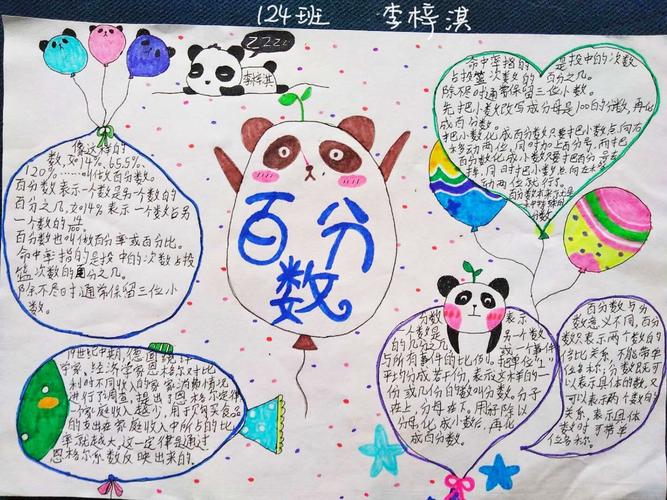 124班 李梓淇
ZZZZ
李梓淇
百分
数
像这样的
数,如14%、65.5%、
120%……叫做百分数。
百分数表示一个数是另一个数的
百分之几,如14%表示一个数占另
一个数的14/100。
百分数也叫做百分率或百分比。
命中率指的是投中的次数占投
篮次数的百分之几。
除不尽时通常保留三位小
数。
命中率指的是投中的次数
占投篮次数的百分之几。
除不尽时通常保留三位小数。
先把小数改写成分母是100的分数,再化
成百分数。
把小数化成百分数只要把小数点向右
移动两位,同时加上百分号,而把
百分数化成小数只要把百分号去
掉,同时把小数点向左移
动两位就行了。
19世纪中期,德国统计
学家、经济学家恩格尔对比
利时不同收入的家庭消费情况
进行了调查,提出了恩格尔定律:
一个家庭收入越少,用于购买食品
的支出在家庭收入中所占的比
率就越大,这一定律是通过
恩格尔系数反映出来的。
分数 表示
一个数是 另一个数
的几分之几 或一个事件
与所有事件的比例。把单位“1”
平均分成若干份,表示这样的一份
或几份的数叫分数。分子
在上,分母在下。用分子除以
分母,化成小数后,再化
成百分数。
百分数与分
数意义不同,百分
数只表示两个数的
倍比关系,不能带单
位名称;分数既可
以表示具体的数,又
可以表示两个数的
关系,表示具体
数时可带单
位名称。